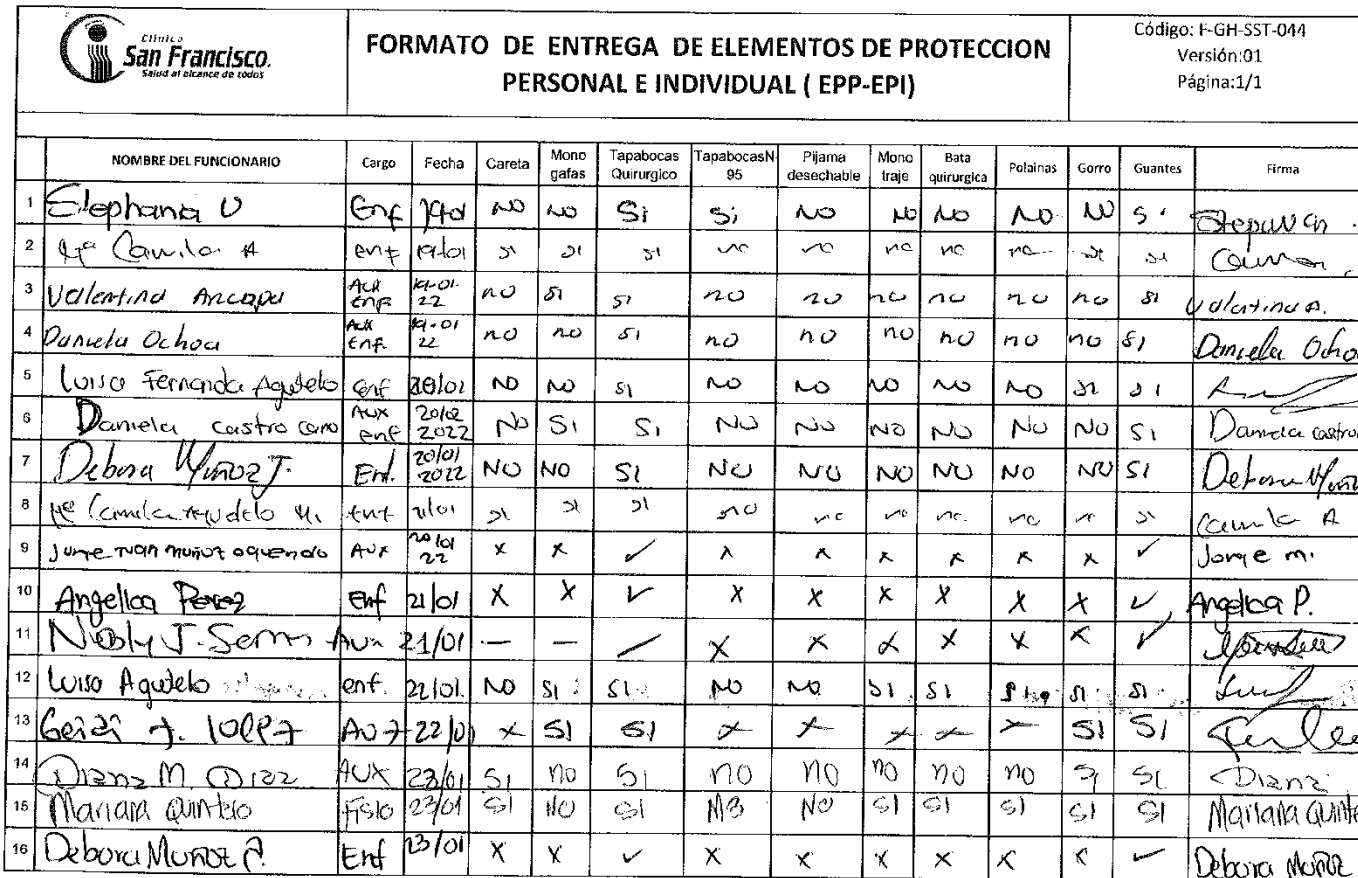 Clínica
San Francisco.
Salud al alcance de todos
FORMATO DE ENTREGA DE ELEMENTOS DE PROTECCION
PERSONAL E INDIVIDUAL ( EPP-EPI)
Código: F-GH-SST-044
Versión:01
Página:1/1
NOMBRE DEL FUNCIONARIO Cargo Fecha Careta Mono gafas Tapabocas Quirurgico TapabocasN-95 Pijama desechable Mono traje Bata quirurgica Polainas Gorro Guantes Firma
1 Stephania U Enf 19-01 NO NO Si Si NO NO NO NO NO Si
2 Mª Camila A enf 19-01 si si si no no no no no si si
3 Valentina Aux enf 19-01-22 no si si no no no no no no si Valentina A.
4 Daniela Ochoa Aux Enf. 19-01 22 no no si no no no no no no si Daniela Ochoa
5 Luisa Fernanda Agudelo enf 20/01 NO NO si NO NO NO NO NO si si
6 Daniela castro cano Aux enf 20/02 2022 No Si Si No No No No No No Si Daniela castro
7 Debora Muñoz J. Enf. 20/01 2022 NO NO SI NO NO NO NO NO NO SI Debora Muñoz
8 Mª Camila Agudelo M. enf 21/01 si si si no no no no no no si Camila A
9 Jorge Ivan muñoz oquendo Aux 20/01 22 x x ✓ x x x x x x ✓ Jorge m.
10 Angelica Perez Enf 21/01 X X ✓ X X X X X X ✓ Angelica P.
11 J. Aux 21/01 — — ✓ X X X X X X ✓
12 Luisa Agudelo enf. 22/01. NO SI SI NO NO SI SI SI SI
13 22/01 x SI SI x x x x x SI SI
14 Diana M. Diaz AUX 23/01 Si no Si no no no no no Si Si Diana
15 Mariana Quintero Fisio 23/01 SI NO SI M3 NO SI SI SI SI SI Mariana Quinte
16 Debora Muñoz A. Enf 23/01 X X ✓ X X X X X X ✓ Debora Muñoz